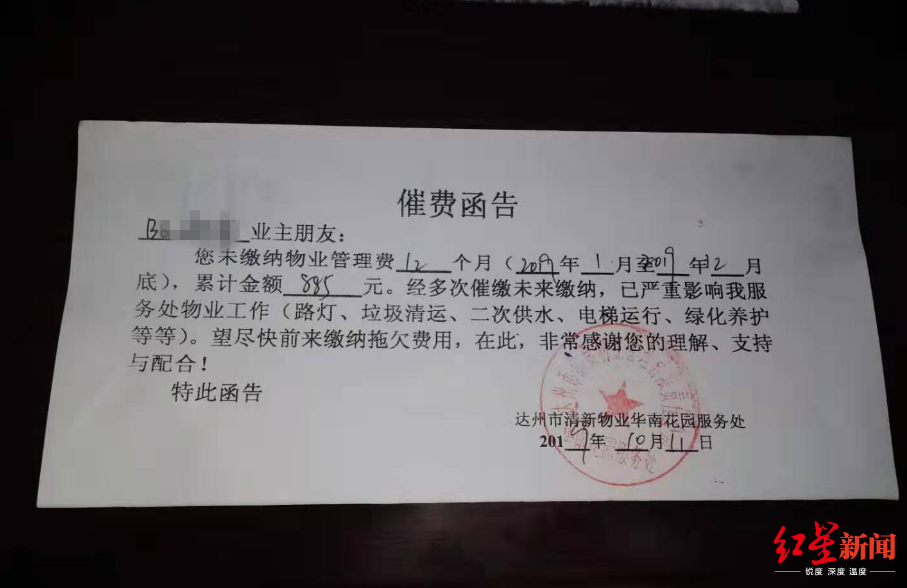 催费函告
业主朋友：
您未缴纳物业管理费12个月（2019年1月至2019年12月
底），累计金额885元。经多次催缴未来缴纳，已严重影响我服
务处物业工作（路灯、垃圾清运、二次供水、电梯运行、绿化养护
等等）。望尽快前来缴纳拖欠费用，在此，非常感谢您的理解、支持
与配合！
特此函告
达州市清新物业华南花园服务处
2019年10月11日
红星新闻
锐度 深度 温度